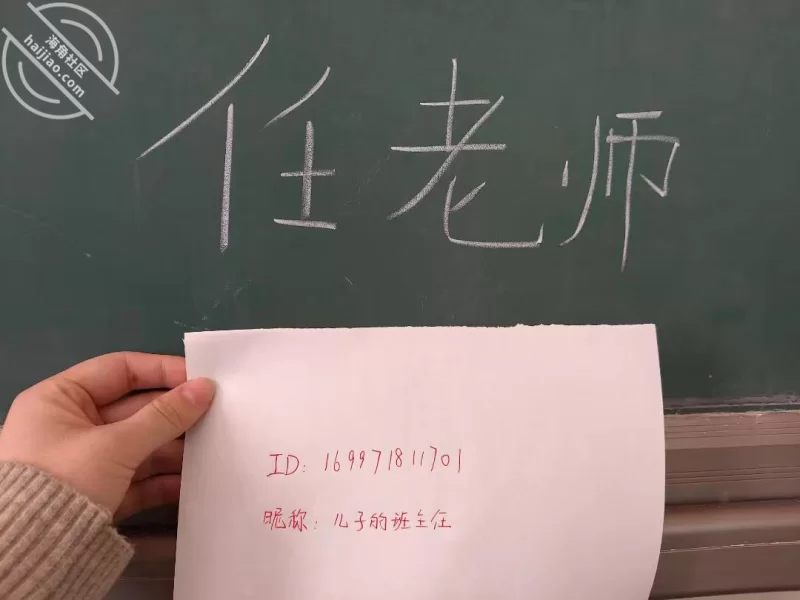 海角社区
haijiao.com
任老师
ID: 169971811701
昵称: 儿子的班主任